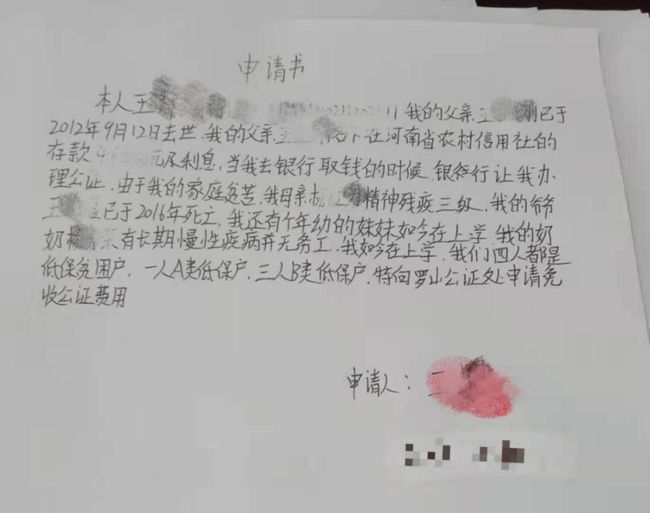 申请书
本人王 11 我的父亲王 刚已于
2012年9月12日去世.我的父亲王 名下在河南省农村信用社的
存款4 元及利息,当我去银行取钱的时候.银行让我办
理公证.由于我的家庭贫苦.我母亲 精神残疾三级.我的爷
王 已于2016年死亡.我还有个年幼的妹妹如今在上学.我的奶
奶 有长期慢性疾病并无务工.我如今在上学.我们四人都是
低保贫困户,一人A类低保户.三人B类低保户.特向罗山公证处申请免
收公证费用
申请人: